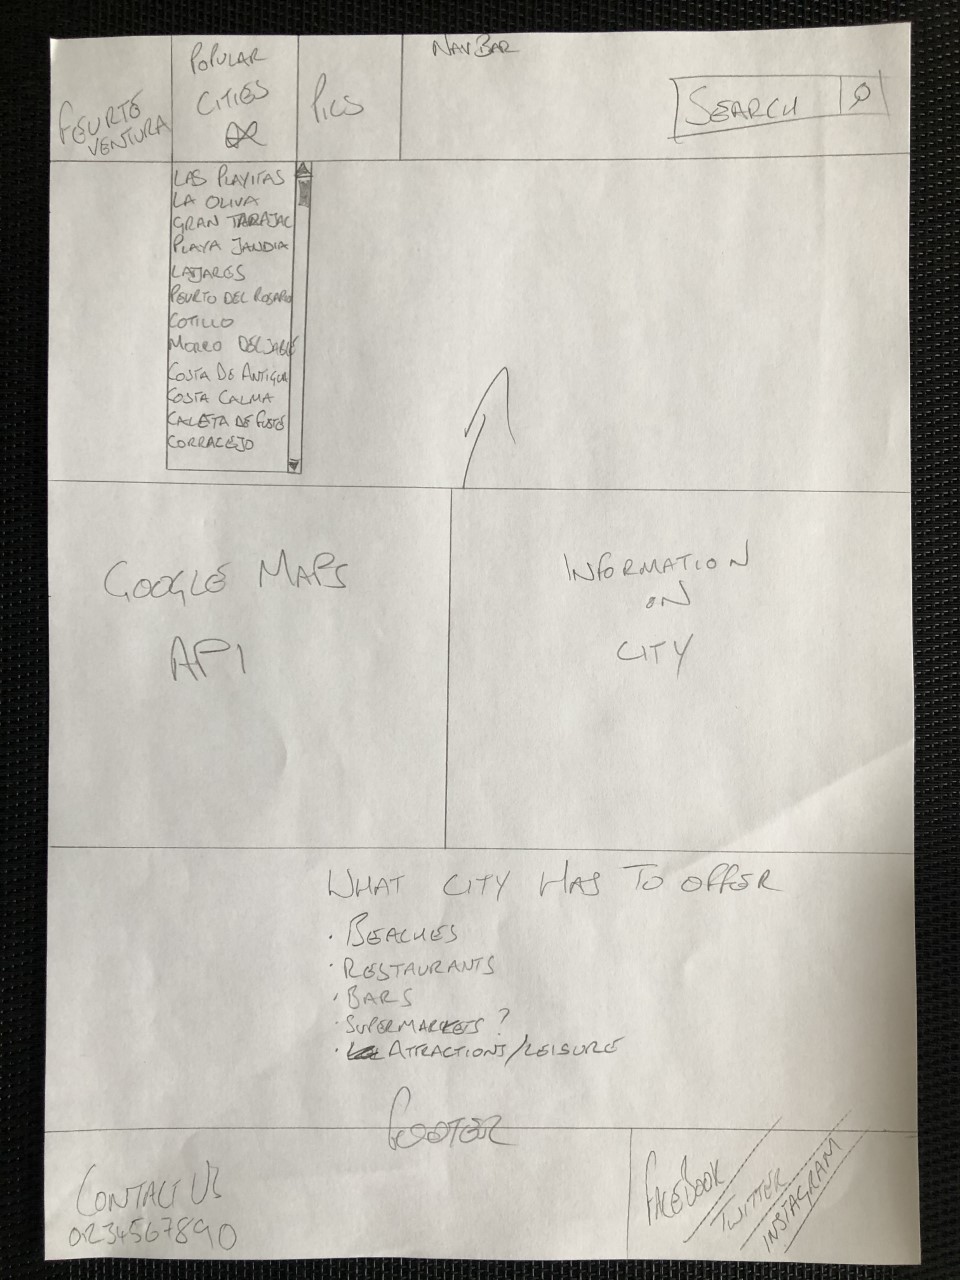 FEURTE
VENTURA
POPULAR
CITIES
PICS
NAVBAR
SEARCH
LAS PLAYITAS
LA OLIVA
GRAN TARAJAL
PLAYA JANDIA
LAJARES
PEURTO DEL ROSARIO
COTILLO
MORRO DEL JABLE
COSTA DE ANTIGUA
COSTA CALMA
CALETA DE FUSTE
CORRALEJO
GOOGLE MAPS
API
INFORMATION
ON
CITY
WHAT CITY HAS TO OFFER
· BEACHES
· RESTAURANTS
· BARS
· SUPERMARKETS ?
· ATTRACTIONS/LEISURE
FOOTER
CONTACT US
01234567890
FACEBOOK
TWITTER
INSTAGRAM